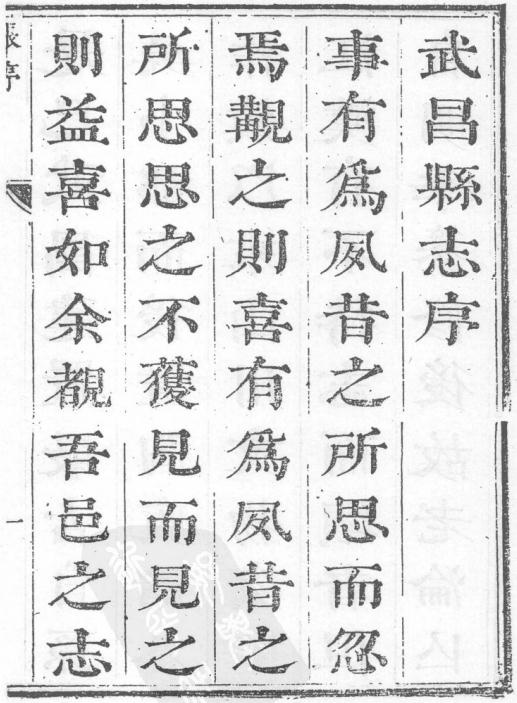 武昌縣志序
事有爲夙昔之所思而忽
焉覯之則喜有爲夙昔之
所思思之不獲見而見之
則益喜如余覩吾邑之志
序
一